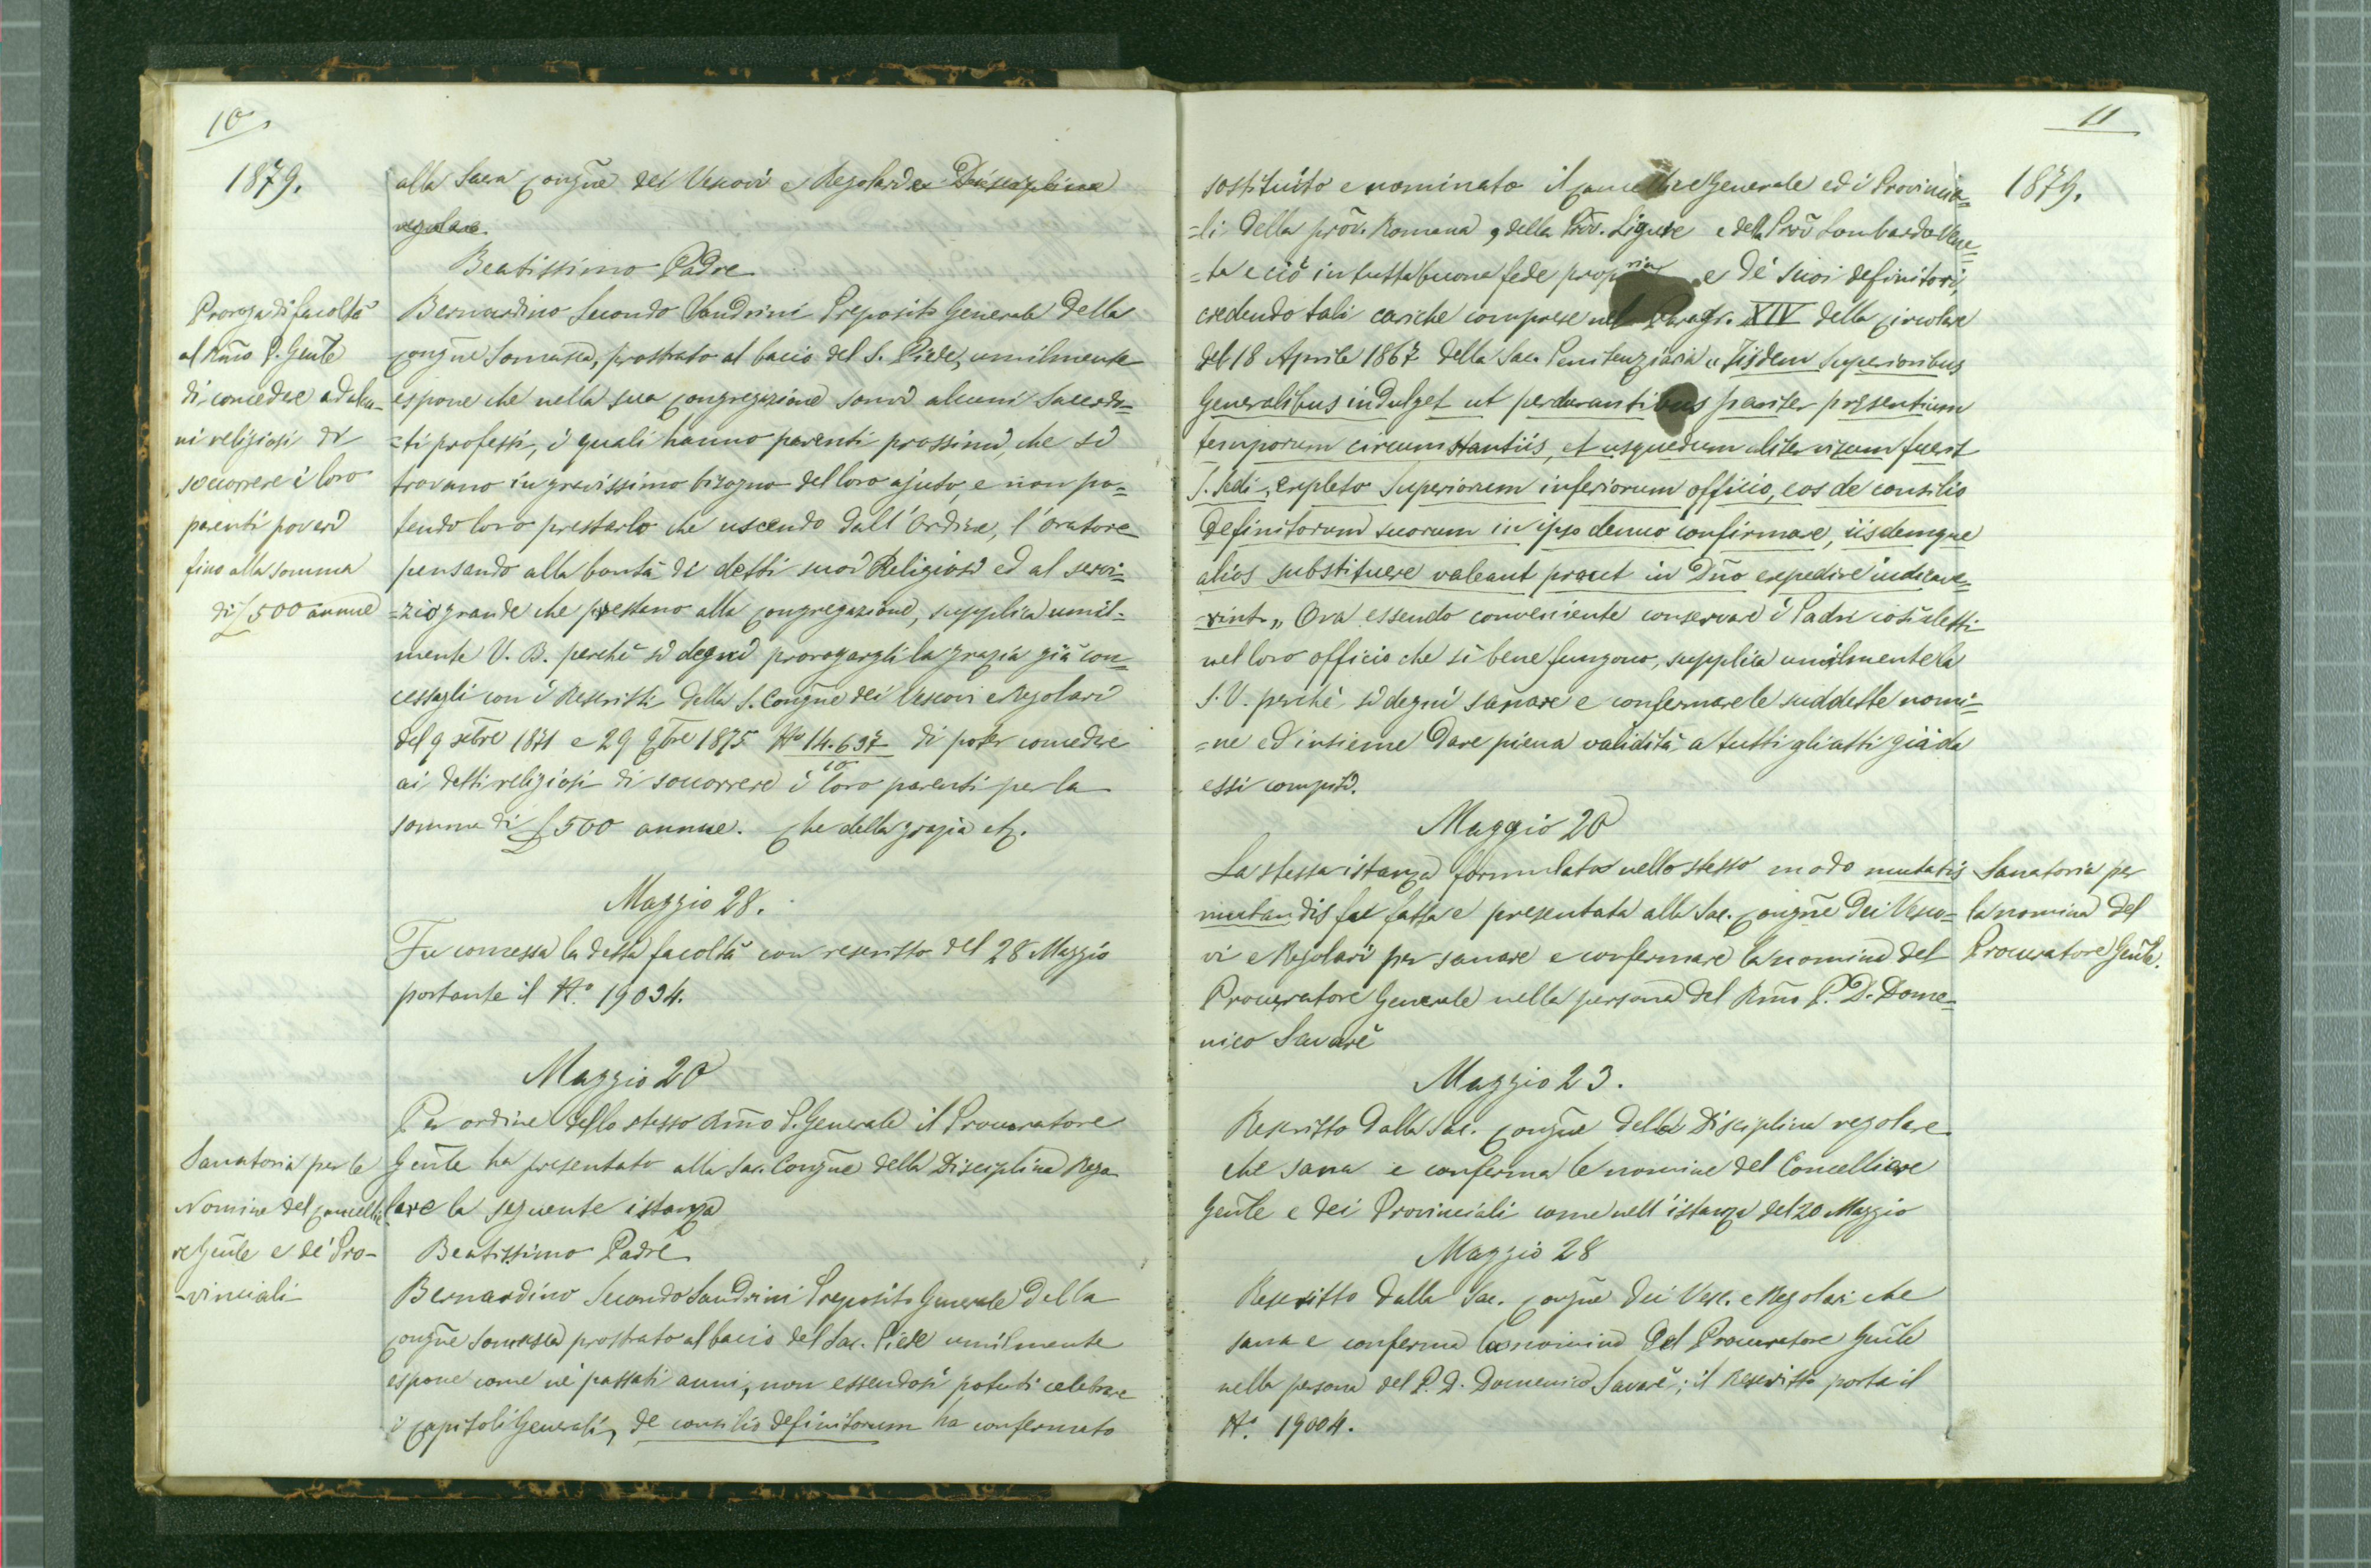 10
1879.
alla Sacra Congñe dei Vescovi e Regolari e Disciplina
regolare.
Beatissimo Padre
Proroga di facoltà
al Rmo P. Gen̄le
di concedere ad alcu-
ni religiosi di
soccorrere i loro
parenti poveri
fino alla somma
di £500 annue
Bernardino Secondo Sandrini Preposito Generale della
Congñe Somasca, prostrato al bacio del S. Piede, umilmente
espone che nella sua Congregazione sonvi alcuni Sacerdo=
=ti professi, i quali hanno parenti prossimi, che si
trovano in gravissimo bisogno del loro ajuto, e non po=
tendo loro prestarlo che uscendo dall'Ordine, l'Oratore
pensando alla bontà di detti suoi Religiosi ed al servi=
=zio grande che prestano alla Congregazione, supplica umil-
mente V. B. perchè si degni prorogargli la grazia già con=
cessagli con i Rescritti della S. Congñe dei Vescovi e Regolari
del 9 7bre 1871 e 29 9bre 1875 No 14.697/10 di poter concedere
ai detti religiosi di soccorrere i loro parenti per la
somma di £500 annue. Che della grazia etc.
Maggio 28.
Fu concessa la detta facoltà con rescritto del 28 Maggio
portante il No. 19034.
Maggio 20
Sanatoria per le
Nomine del Cancellie
re Gen̄le e de' Pro-
-vinciali
Per ordine dello stesso Rmo P. Generale il Procuratore
Gen̄le ha presentato alla Sac. Congñe della Disciplina Rego
lare la seguente istanza
Beatissimo Padre
Bernardino Secondo Sandrini Preposito Generale della
Congñe Somasca prostrato al bacio del Sac. Piede umilmente
espone come ne' passati anni, non essendosi potuti celebrare
i Capitoli Generali, de consilio definitorum ha confermato
11
1879.
sostituito e nominato il Cancelliere Generale ed i Provincia=
=li della prov. Romana, della Prov. Ligure e della Prov Lombardo Vene=
=ta e ciò in tutta buona fede propria e de' suoi definitori,
credendo tali cariche comprese nel Paragr. XIV della Circolare
del 18 Aprile 1867 della Sac. Penitenziaria "Iisdem Superioribus
Generalibus indulget ut perdurantibus pariter presentium
temporum circumstantiis, et usquedum aliter visum fuerit
S. Sedi, expleto Superiorum inferiorum officio, eos de consilio
Definitorum suorum in ipso denuo confirmare, iisdemque
alios substituere valeant prout in Dño expedire indicave=
=rint" Ora essendo conveniente conservare i Padri così eletti
nel loro officio che sì bene fungono, supplica umilmente la
S. V. perchè si degni sanare e confermare le suddette nomi=
=ne ed insieme dare piena validità a tutti gli atti già da
essi compiti.
Maggio 20
Sanatoria per
la nomina del
Procuratore Gen̄le.
La stessa istanza formulata nello stesso modo mutatis
mutandis fu fatta e presentata alla Sac. Congñe dei Vesco=
vi e Regolari per sanare e confermare la nomina del
Procuratore Generale nella persona del Rmo P. D. Dome=
nico Savarè
Maggio 23.
Rescritto dalla Sac. Congñe della Disciplina regolare
che sana e conferma le nomine del Cancelliere
Gen̄le e dei Provinciali come nell'istanza del 20 Maggio
Maggio 28
Rescritto dalla Sac. Congñe dei Vesc. e Regolari che
sana e conferma la nomina del Procuratore Gen̄le
nella persona del P. D. Domenico Savarè; il Rescritto porta il
No. 19004.